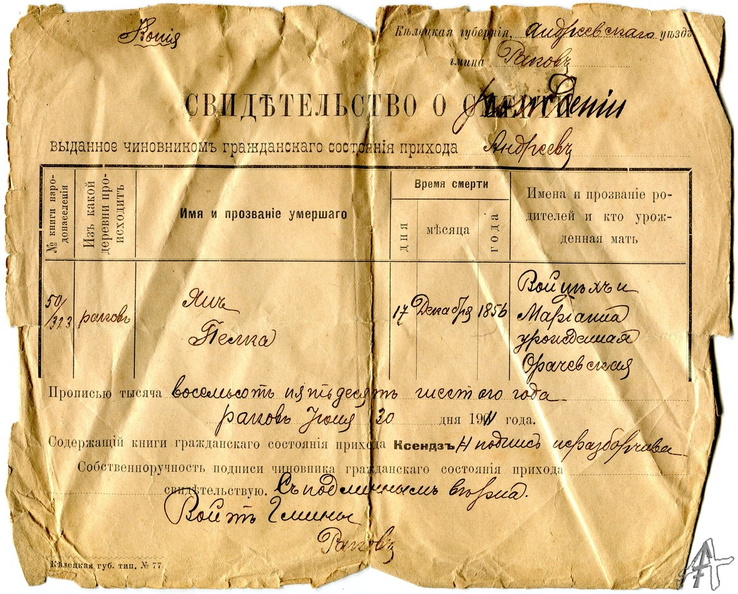 Копія
Кѣлецкая губернія, Андреевскаго уѣздъ
гмина Раковъ
СВИДѢТЕЛЬСТВО О рожденіи
выданное чиновникомъ гражданскаго состоянія прихода Андреевъ
№ книги народонаселенія
Изъ какой деревни происходитъ
Имя и прозваніе умершаго
Время смерти
дня мѣсяца года
Имена и прозваніе родителей и кто урожденная мать
50/323 раковъ Янъ Пелка 17 Декабря 1856
Войцѣхъ и
Маріанна
урожденная
Орачевская
Прописью тысяча восемьсотъ пятьдесятъ шестого года
раковъ Іюня 30 дня 1911 года.
Содержащій книги гражданскаго состоянія прихода Ксендзъ Н подпись неразборчива
Собственноручность подписи чиновника гражданскаго состоянія прихода
свидѣтельствую. Съ подлиннымъ вѣрна.
Войтъ Гмины
Раковъ
Кѣлецкая губ. тип. № 77